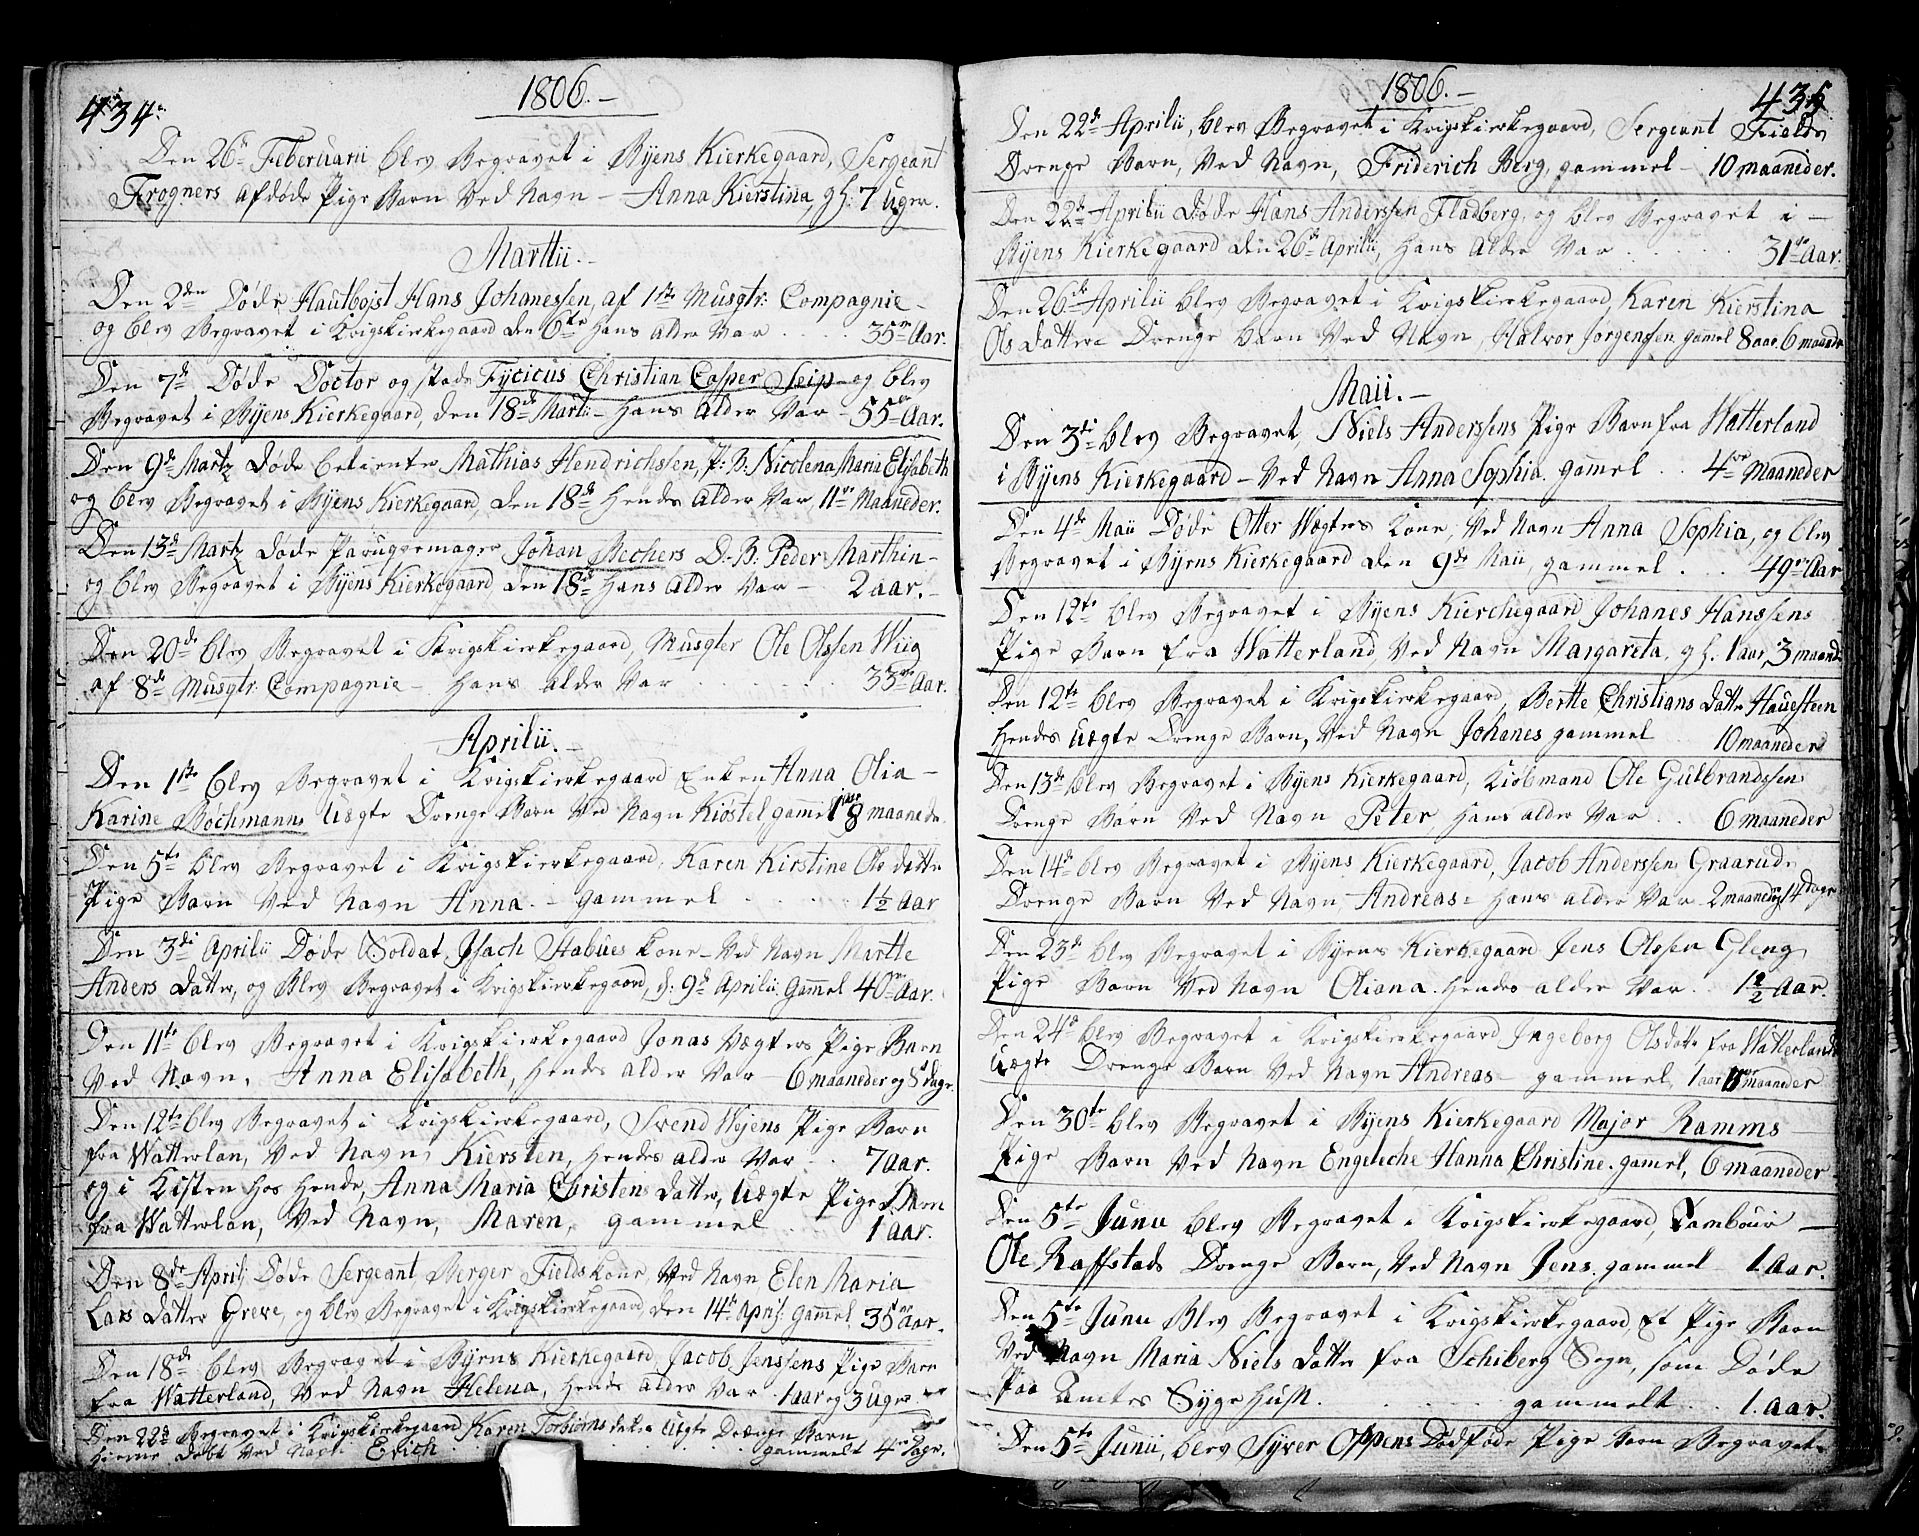 434.
1806.-
Den 26de Februarii blev Begravet i Byens Kierkegaard, Sergeant
Frogners afdøde Pige Barn Ved Navn - Anna Kierstina, gl: 7 Uger.
Martii.-
Den 2den Døde Hautbojst Hans Johanessen, af 1ste Musqtr: Compagnie -
og blev Begravet i Krigskierkegaard den 6te hans alder Var . . . . 35 Aar.
Den 7de Døde Doctor og stads Fycicus Christian Casper Seip - og blev
Begravet i Byens Kierkegaard, den 18de Martii - hans alder Var - 55 Aar.
Den 9de Martz døde betiente Mathias Hendrichssen, P: B: Nicolena Maria Elisabeth
og blev Begravet i Byens Kierkegaard, den 18de hendes alder Var, 11 Maaneder.
Den 13de Martz døde Paruqqemager Johan Bechers D: B: Peder Marthin -
og blev Begravet i Byens Kierkegaard, den 18de hans alder Var - 2 aar. -
Den 20de blev Begravet i Krigskierkegaard, Musqter Ole Olssen Wiig
af 8de Musqtr: Compagnie - hans alder Var . . . 33 Aar.
Aprilii.-
Den 1ste blev Begravet i Krigskierkegaard Enken Anna Olia -
Karine Bøchmanns Uægte Drenge Barn Ved Navn Kiøstel gammel 18 maaneder
Den 5te blev Begravet i Krigskierkegaard, Karen Kirstine Ols datter
Pige Barn Ved Navn Anna. - gammel . . . . 1½ Aar
Den 3di Aprilii Døde Soldat, Isach Habues kone - Ved Navn Marthe
Anders datter, og Blev Begravet i Krigskierkegaard, d: 9de Aprilii. Gamel 40 Aar.
Den 11te blev Begravet i Krigskierkegaard Jonas Vægters Pige Barn
Ved Navn, Anna Elisabeth, hendes alder Var - 6 maaneder og 5 dage.
Den 12te blev Begravet i Krigskierkegaard, Svend Wejens Pige Barn
fra Watterlan, Ved Navn, Kiersten, hendes alder Var . . 7 aar.
og i Kisten hos hende, Anna Maria Christens datter, Uægte Pige Barn
fra Watterlan, Ved Navn, Maren, gammel . . 1 aar.
Den 8de Aprilj Døde Sergeant Berger Fields kone, Ved Navn, Elen Maria
Lars Datter Greve, og blev Begravet i Krigskierkegaard, den 14de April. gammel, 35 Aar.
Den 18de blev Begravet i Byens Kierkegaard, Jacob Jenssens Pige Barn
fra Watterland, Ved Navn Helena, hendes alder Var - 1 aar og 3 Uger
Den 22de Begravet i Krigskierkegaard Karen Torbiørns datter Uægte Drenge Barn
hieme døbt Ved Navn Erich gammelt 4 Dage.
1806.-
435
Den 22de Aprilii, blev Begravet i Krigskierkegaard, Sergeant Fields
Drenge Barn, Ved Navn, Friderich Berg, gammel - 10 maaneder.
Den 22de Aprilii døde Hans Anderssen Fladberg, og blev Begravet i -
Byens Kierkegaard den 26de Aprilii, hans alder Var . . . . . 31 Aar.
Den 26de Aprilii blev Begravet i Krigskierkegaard, Karen Kierstina
Ols datters Drenge barn Ved Navn, Halvor Jorgenssen gamel 8 aar. 6 maaneder
Maii.-
Den 3di blev Begravet, Niels Anderssens Pige Barn fra Watterland
i Byens Kierkegaard - Ved Navn Anna Sophia. gamel . . 4 Maaneder
Den 4de Maii Døde Otter Vægters Kone, Ved Navn Anna Sophia, og blev
Begravet i Byens Kierkegaard den 9de Maii, gammel . . . 49 Aar
Den 12te blev Begravet i Byens Kierchegaard Johanes Hanssens
Pige Barn fra Watterland, Ved Navn Margareta, gl. 1 aar 3 maand
Den 12te blev Begravet i Krigskierkegaard, Berthe Christians datter Hauesteen
hendes Uægte Drenge Barn, Ved Navn Johanes gammel 10 maaneder
Den 13de blev Begravet i Byens Kierkegaard, Kiöbmand Ole Gulbrandssen
Drenge Barn Ved Navn Peter, hans alder Var . . 6 maaneder
Den 14de blev Begravet i Byens Kierkegaard, Jacob Anderssen Graaruds
Drenge Barn Ved Navn, Andreas - hans alder Var - 2 maaneder og 14 Dage
Den 23de blev Begravet i Byens Kierkegaard Jens Olssen Gleng
Pige Barn Ved Navn Oliana. hendes alder Var . . 1½ Aar.
Den 24de blev Begravet i Krigskierkegaard Ingeborg Olsdatter fra Watterlands
Uægte Drenge Barn Ved Navn Andreas - gammel, 1 aar maaneder
Den 30te blev Begravet i Byens Kierkegaard Major Ramms
Pige Barn Ved Navn Engeleche Hanna Christine. gamel, 6 maaneder
Den 5te Junii blev Begravet i Krigskierkegaard, Tambour -
Ole Raffstads Drenge Barn, Ved Navn Jens. gammel 1 Aar.
Den 5te Junii Blev Begravet i Krigskierkegaard, Et Pige Barn
Ved Navn Maria Niels datter fra Schiberg Sogn, som Døde
Paa Amtes Syge Huss. . . . . . gammelt . . 1. Aar.
Den 5te Junii, blev Syver Oppens Dødføde Pige Barn Begravet.